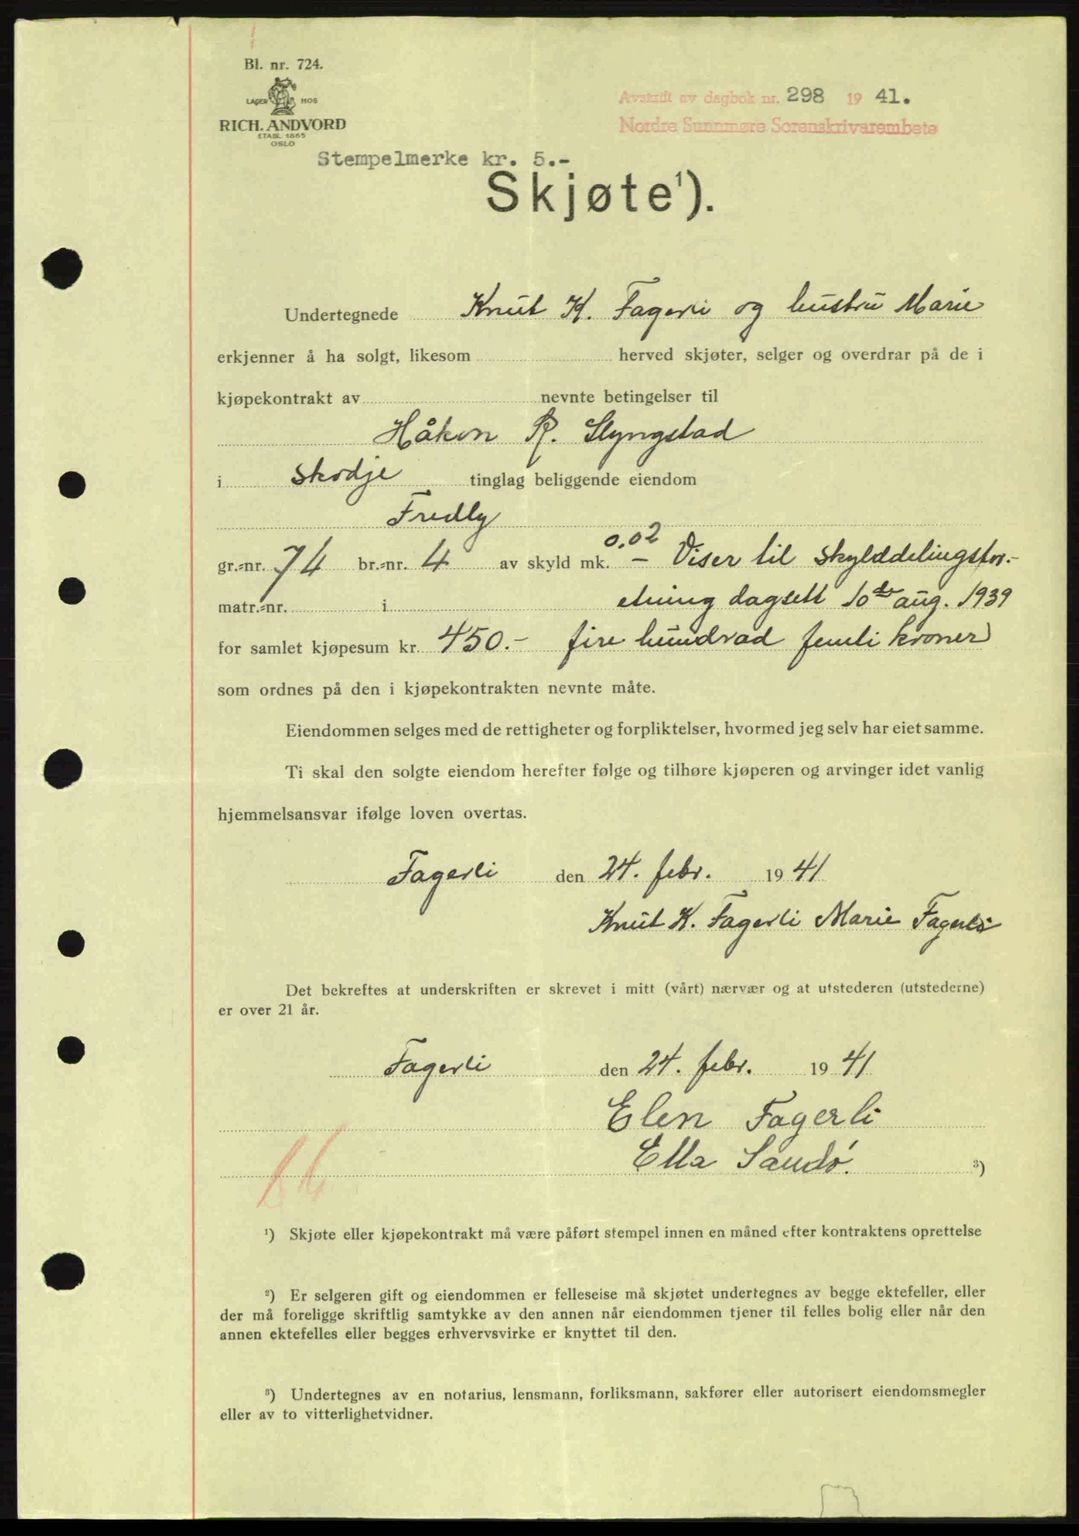 Bl. nr. 724.
LAGER HOS
RICH. ANDVORD
ETABL 1865
OSLO
Avskrift av dagbok nr. 298 1941.
Nordre Sunnmøre Sorenskrivarembete
Stempelmerke kr. 5.-
Skjøte¹).
Undertegnede Knut K. Fagerli og hustru Marie
erkjenner å ha solgt, likesom herved skjøter, selger og overdrar på de i
kjøpekontrakt av nevnte betingelser til
Håkon R. Slyngstad
i Skodje tinglag beliggende eiendom
Fredly
gr.=nr. 74 br.=nr. 4 av skyld mk. 0,02 — Viser til skylddelingsfor.-
matr.=nr. i retning dagsett 10de aug. 1939
for samlet kjøpesum kr. 450.- fire hundrad femti kroner
som ordnes på den i kjøpekontrakten nevnte måte.
Eiendommen selges med de rettigheter og forpliktelser, hvormed jeg selv har eiet samme.
Ti skal den solgte eiendom herefter følge og tilhøre kjøperen og arvinger idet vanlig
hjemmelsansvar ifølge loven overtas.
Fagerli den 24. febr. 1941
Knut K. Fagerli Marie Fagerli
Det bekreftes at underskriften er skrevet i mitt (vårt) nærvær og at utstederen (utstederne)
er over 21 år.
Fagerli den 24. febr. 1941
Elen Fagerli
Ella Sandø.
³)
¹) Skjøte eller kjøpekontrakt må være påført stempel innen en måned efter kontraktens oprettelse
²) Er selgeren gift og eiendommen er felleseise må skjøtet undertegnes av begge ektefeller, eller
der må foreligge skriftlig samtykke av den annen når eiendommen tjener til felles bolig eller når den
annen ektefelles eller begges erhvervsvirke er knyttet til den.
³) Undertegnes av en notarius, lensmann, forliksmann, sakfører eller autorisert eiendomsmegler
eller av to vitterlighetvidner.